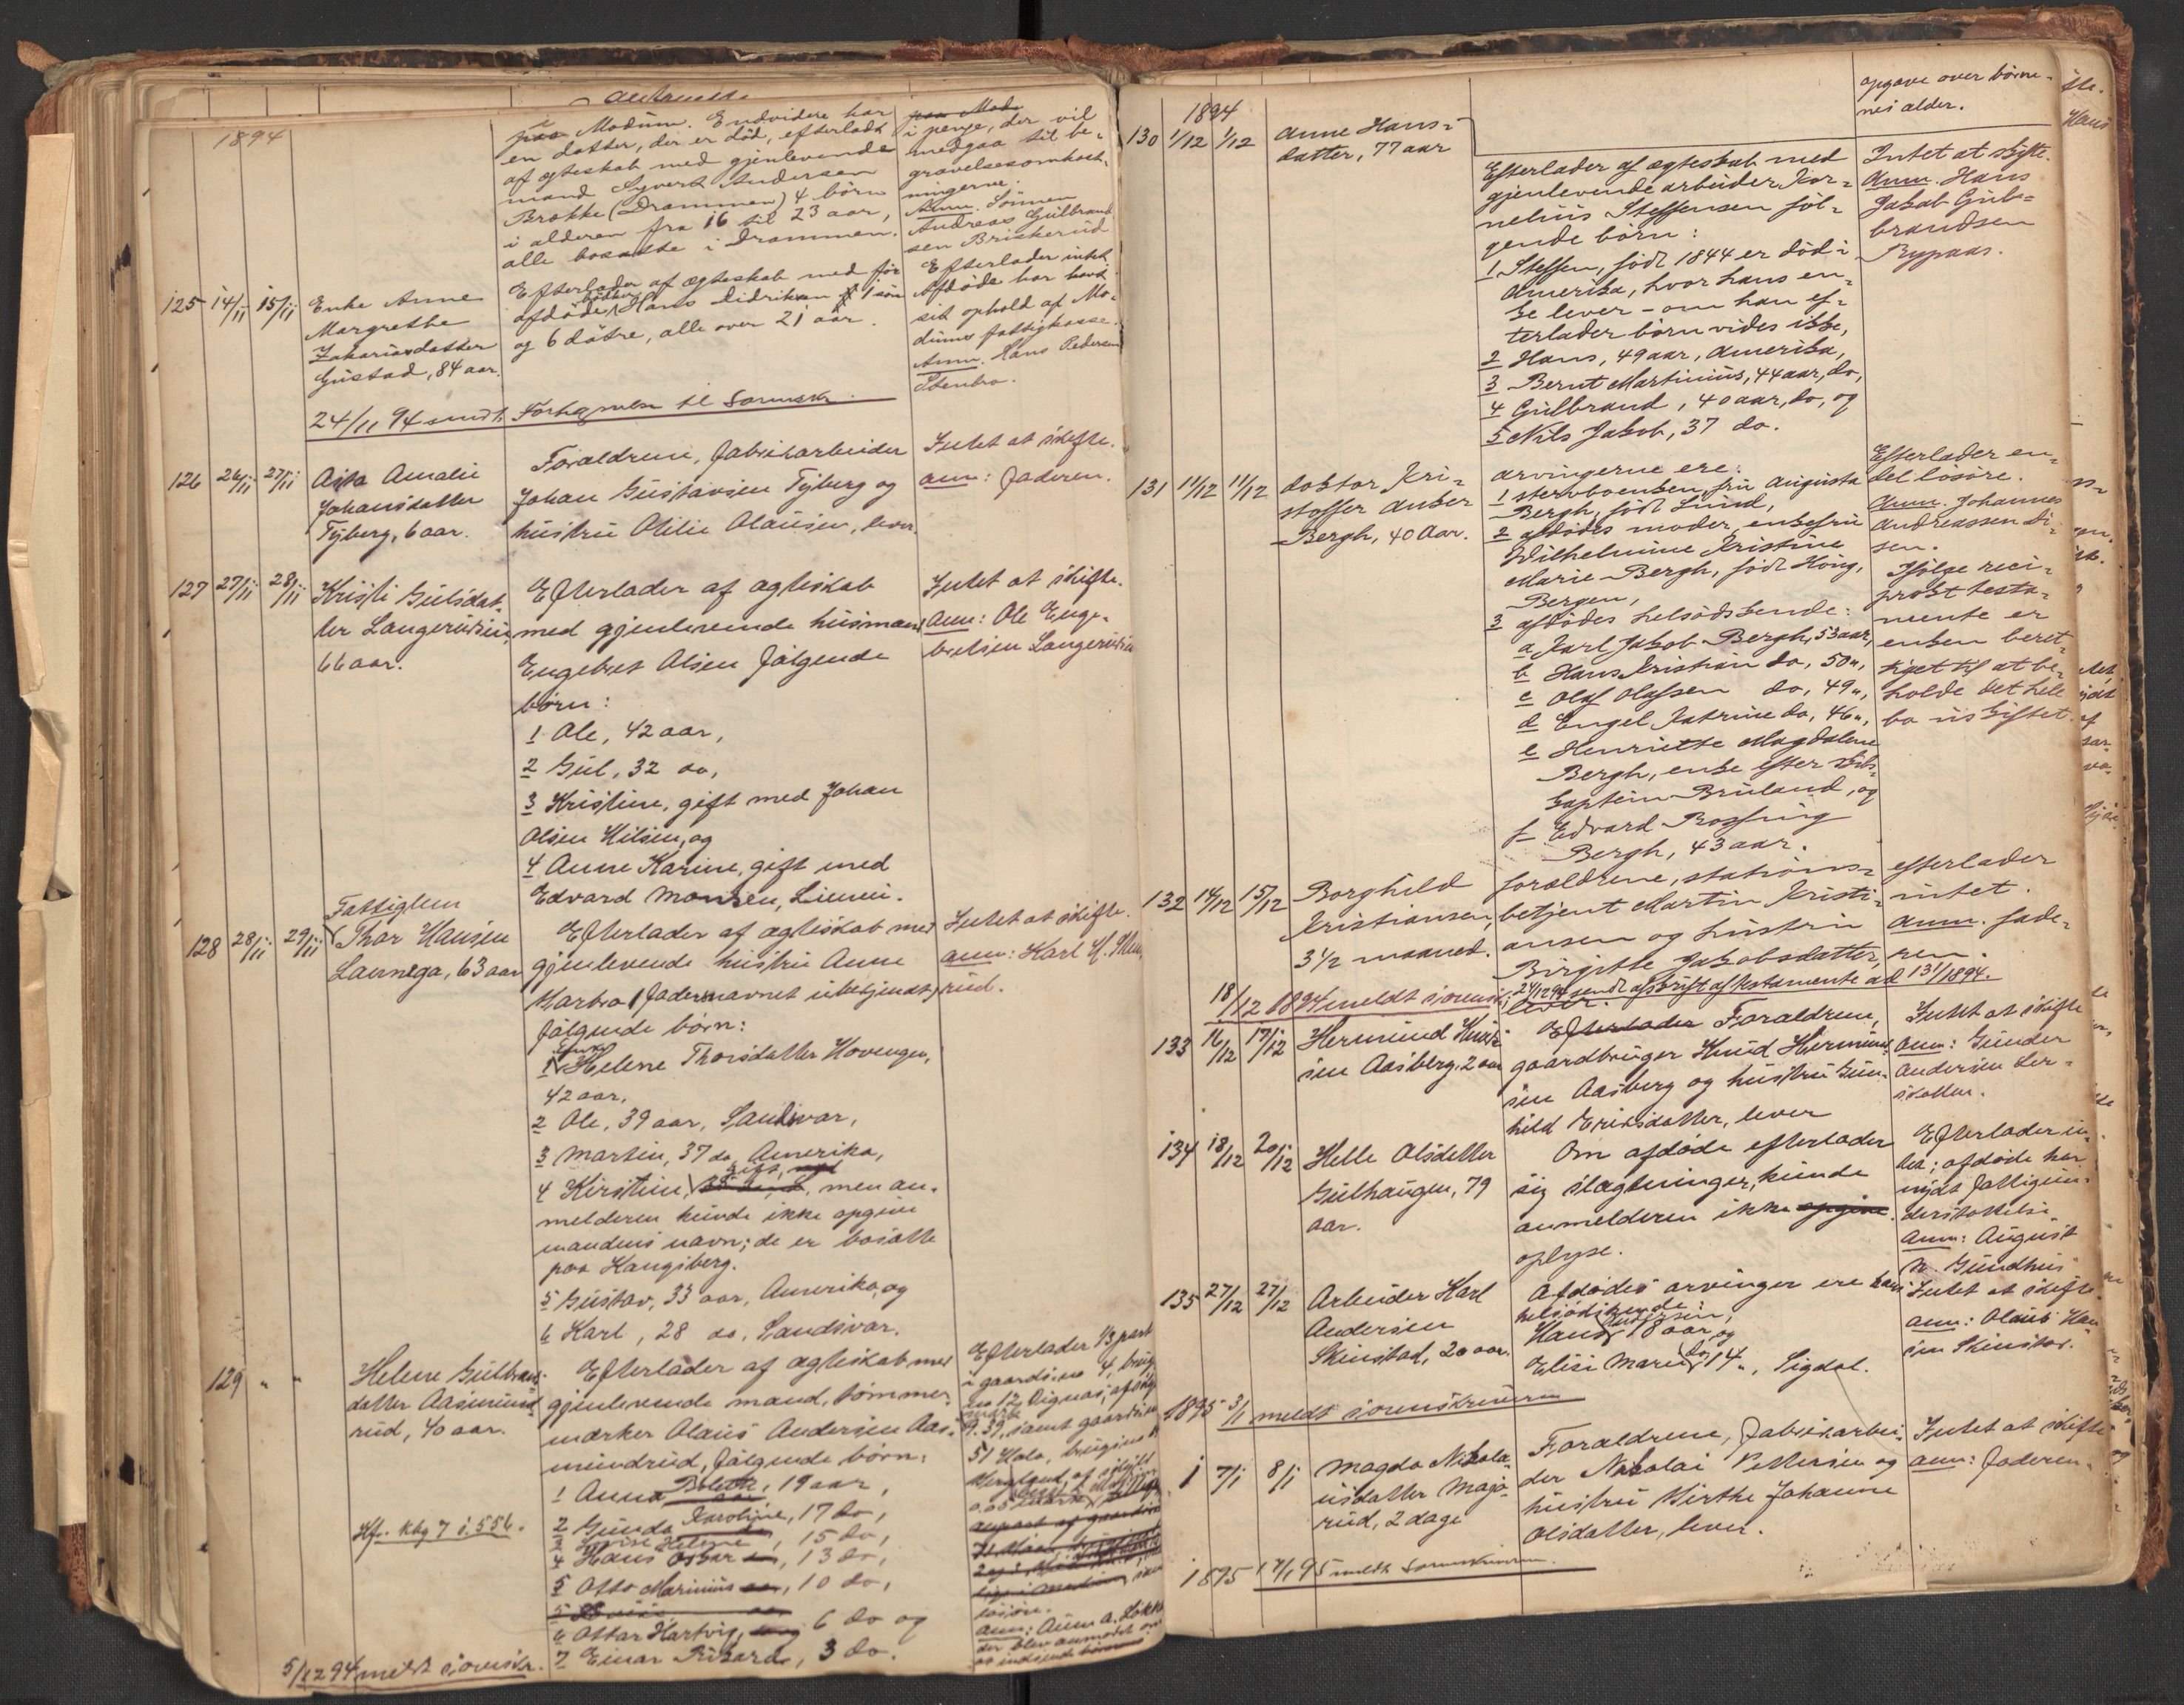 1894
paa Modum. Endvidere har
en datter, der er død, efterladt
af ægteskab med gjenlevende
mand Syvert Andersen
Brække (Drammen) 4 børn
i alderen fra 16 til 23 aar,
alle bosatte i Drammen.
paa Mod
i penge, der vil
medgaa til be-
gravelsesomkost-
ningerne.
Anm. Sønnen
Andreas Gulbrand
sen Briskerud
125 14/11 15/11 Enke Anne
Margrethe
Zakariasdatter
Gustad, 84 aar.
Efterlader af ægteskab med før
afdøde Hans Didriksen 1 søn
og 6 døtre, alle over 21 aar.
Efterlader intet
Afdøde har havt
sit ophold af Mo-
dums fattigkasse.
Anm. Hans Pedersen
Stenbro.
24/11 94 sendt Fortegnelse til Sorenskr.
126 26/11 27/11 Asta Amalie
Johansdatter
Tyberg, 6 aar.
Forældrene, fabrikarbeider
Johan Gustavsen Tyberg og
hustru Otilie Olausen, lever.
Intet at skifte.
anm: Faderen.
127 27/11 28/11 Kristi Gulsdat-
ter Langerudeie,
66 aar.
Efterlader af ægteskab
med gjenlevende husmand
Engebret Olsen følgende
børn:
1 Ole, 42 aar,
2 Gul, 32 do,
3 Kristine, gift med Johan
Olsen Nilsen, og
4 Anne Karine, gift med
Edvard Monsen, Linnei.
Intet at skifte.
Anm: Ole Enge-
bretsen Langerudeie
128 28/11 29/11 Fattiglem
Thor Hansen
Lavnega, 63 aar
Efterlader af ægteskab med
gjenlevende hustru Anne
Marbra (Fadersnavnet ubekjendt)
følgende børn:
1 Enke Helene Thorsdatter Hovengen,
42 aar,
2 Ole, 39 aar, Sandsvar,
3 Martin, 37 do, Amerika,
4 Kirstine, gift, men an-
melderen kunde ikke opgive
mandens navn; de er bosatte
paa Kongsberg.
5 Gustav, 33 aar, Amerika, og
6 Karl, 28 do, Sandsvar.
Intet at skifte.
anm: Karl H.
rud.
129 " " Helene Gulbrands-
datter Aasmund-
rud, 40 aar.
Efterlader af ægteskab med
gjenlevende mand, tømmer-
mærker Olaus Andersen Aas-
mundrud, følgende børn:
1 Anna Bolette, 19 aar,
2 Gunda Karoline, 17 do,
3 Helene, 15 do,
4 Hans Oskar, 13 do,
5 Otto Marinius, 10 do,
6 Ottar Hartvig, 6 do og
7 Einar Rikard, 3 do.
Efterlader 1/3 part
i gaardsno 4, brug
no 12
9.39, samt gaardsno
51 Hals, brugsno
løsøre.
anm: Anne A. Løkke
der blev anmodet om
at indsende børnenes
Hfr. Kbg 7 s. 556.
5/12 94 meldt sorenskr.
1894
opgave over børne-
nes alder.
130 1/12 1/12 Anne Hans-
datter, 77 aar
Efterlader af ægteskab med
gjenlevende arbeider Kor-
nelius Steffensen føl-
gende børn:
1 Steffen, født 1844 er død i
Amerika, hvor hans en-
ke lever - om han ef-
terlader børn vides ikke,
2 Hans, 49 aar, Amerika,
3 Bernt Martinius, 44 aar, do,
4 Gulbrand, 40 aar, do, og
5 Nils Jakob, 37 do.
Intet at skifte.
Anm. Hans
Jakob Gul-
brandsen
Rypaas.
131 11/12 11/12 doktor Kri-
stoffer Anker
Bergh, 40 Aar.
Arvingerne ere:
1 stervboenken fru Augusta
Bergh, født Lund,
2 afdødes moder, enkefru
Wilhelmine Kristine
Marie Bergh, født König,
Bergen,
3 afdødes helsødskende:
a Karl Jakob Bergh, 53 aar,
b Hans Kristian do, 50 ",
c Olaf Olafsen do, 49 ",
d Engel Katrine do, 46 ",
e Henriette Magdalene
Bergh, enke efter skibs-
kaptein Bruland, og
f Edvard Rossing
Bergh, 43 aar.
Efterlader en-
del løsøre.
Anm. Johannes
Andreassen Di-
sen.
Ifølge reci-
prokt testa-
mente er
enken beret-
tiget til at be-
holde det hele
bo uskiftet.
132 14/12 15/12 Borghild
Kristiansen,
3 1/2 maaned.
forældrene, stations-
betjent Martin Kristi-
ansen og hustru
Birgitte Jakobsdatter,
lever.
efterlader
intet.
anm. fade-
ren.
18/12 1894 meldt sorenskr; 24/12 94 sendt afskrift af testamente ad 131/1894.
133 16/12 17/12 Hermund Knud-
sen Aasberg, 2 aar
Efterlader Forældrene,
gaardbruger Knud Hermund-
sen Aasberg og hustru Gun-
hild Eriksdatter, lever
Intet at skifte
anm: Gunder
Andersen Ler-
skallen.
134 18/12 20/12 Helle Olsdatter
Gulhaugen, 79
aar.
Om afdøde efterlader
sig slægtninger, kunde
anmelderen ikke opgive.
oplyse.
Efterlader in-
tet; afdøde har
nydt fattigun-
derstøttelse
Anm: August
N. Gundhus
135 27/12 27/12 Arbeider Karl
Andersen
Skinstad, 20 aar.
Afdødes arvinger ere hans
helsødskende
Hans Andersen, 18 aar, og
Elise Marie do, 14 ", Sigdal.
Intet at skifte
anm: Olaus Han
sen Skinstad.
1895 3/1 meldt sorenskriveren
1 7/1 8/1 Magda Nikola-
isdatter Majo-
rud, 2 dage
Forældrene, fabrikarbei-
der Nikolai Pettersen og
hustru Birthe Johanne
Olsdatter, lever.
Intet at skifte
anm: Faderen.
1895 17/1 95 meldt Sorenskriveren.